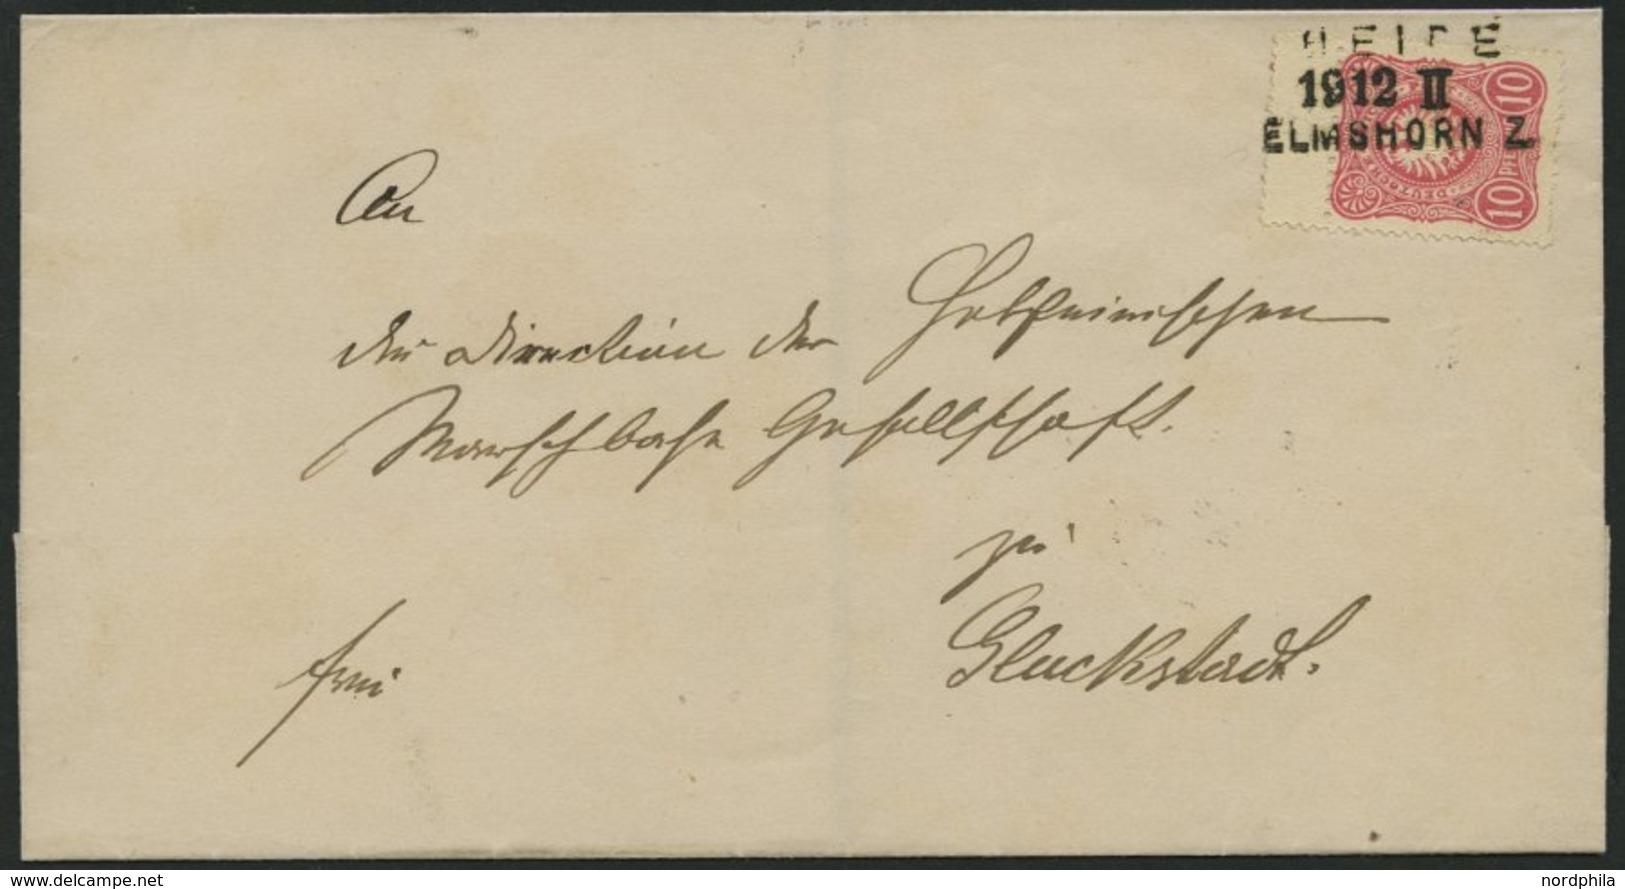 HEIDE
1912 II
ELMSHORN Z.
10
10 PFENNIG
DEUTSCHE
An
die Direction der Holsteinischen
Marschbahn Gesellschaft.
zu
Glückstadt.
frei
www.delcampe.net
nordphila